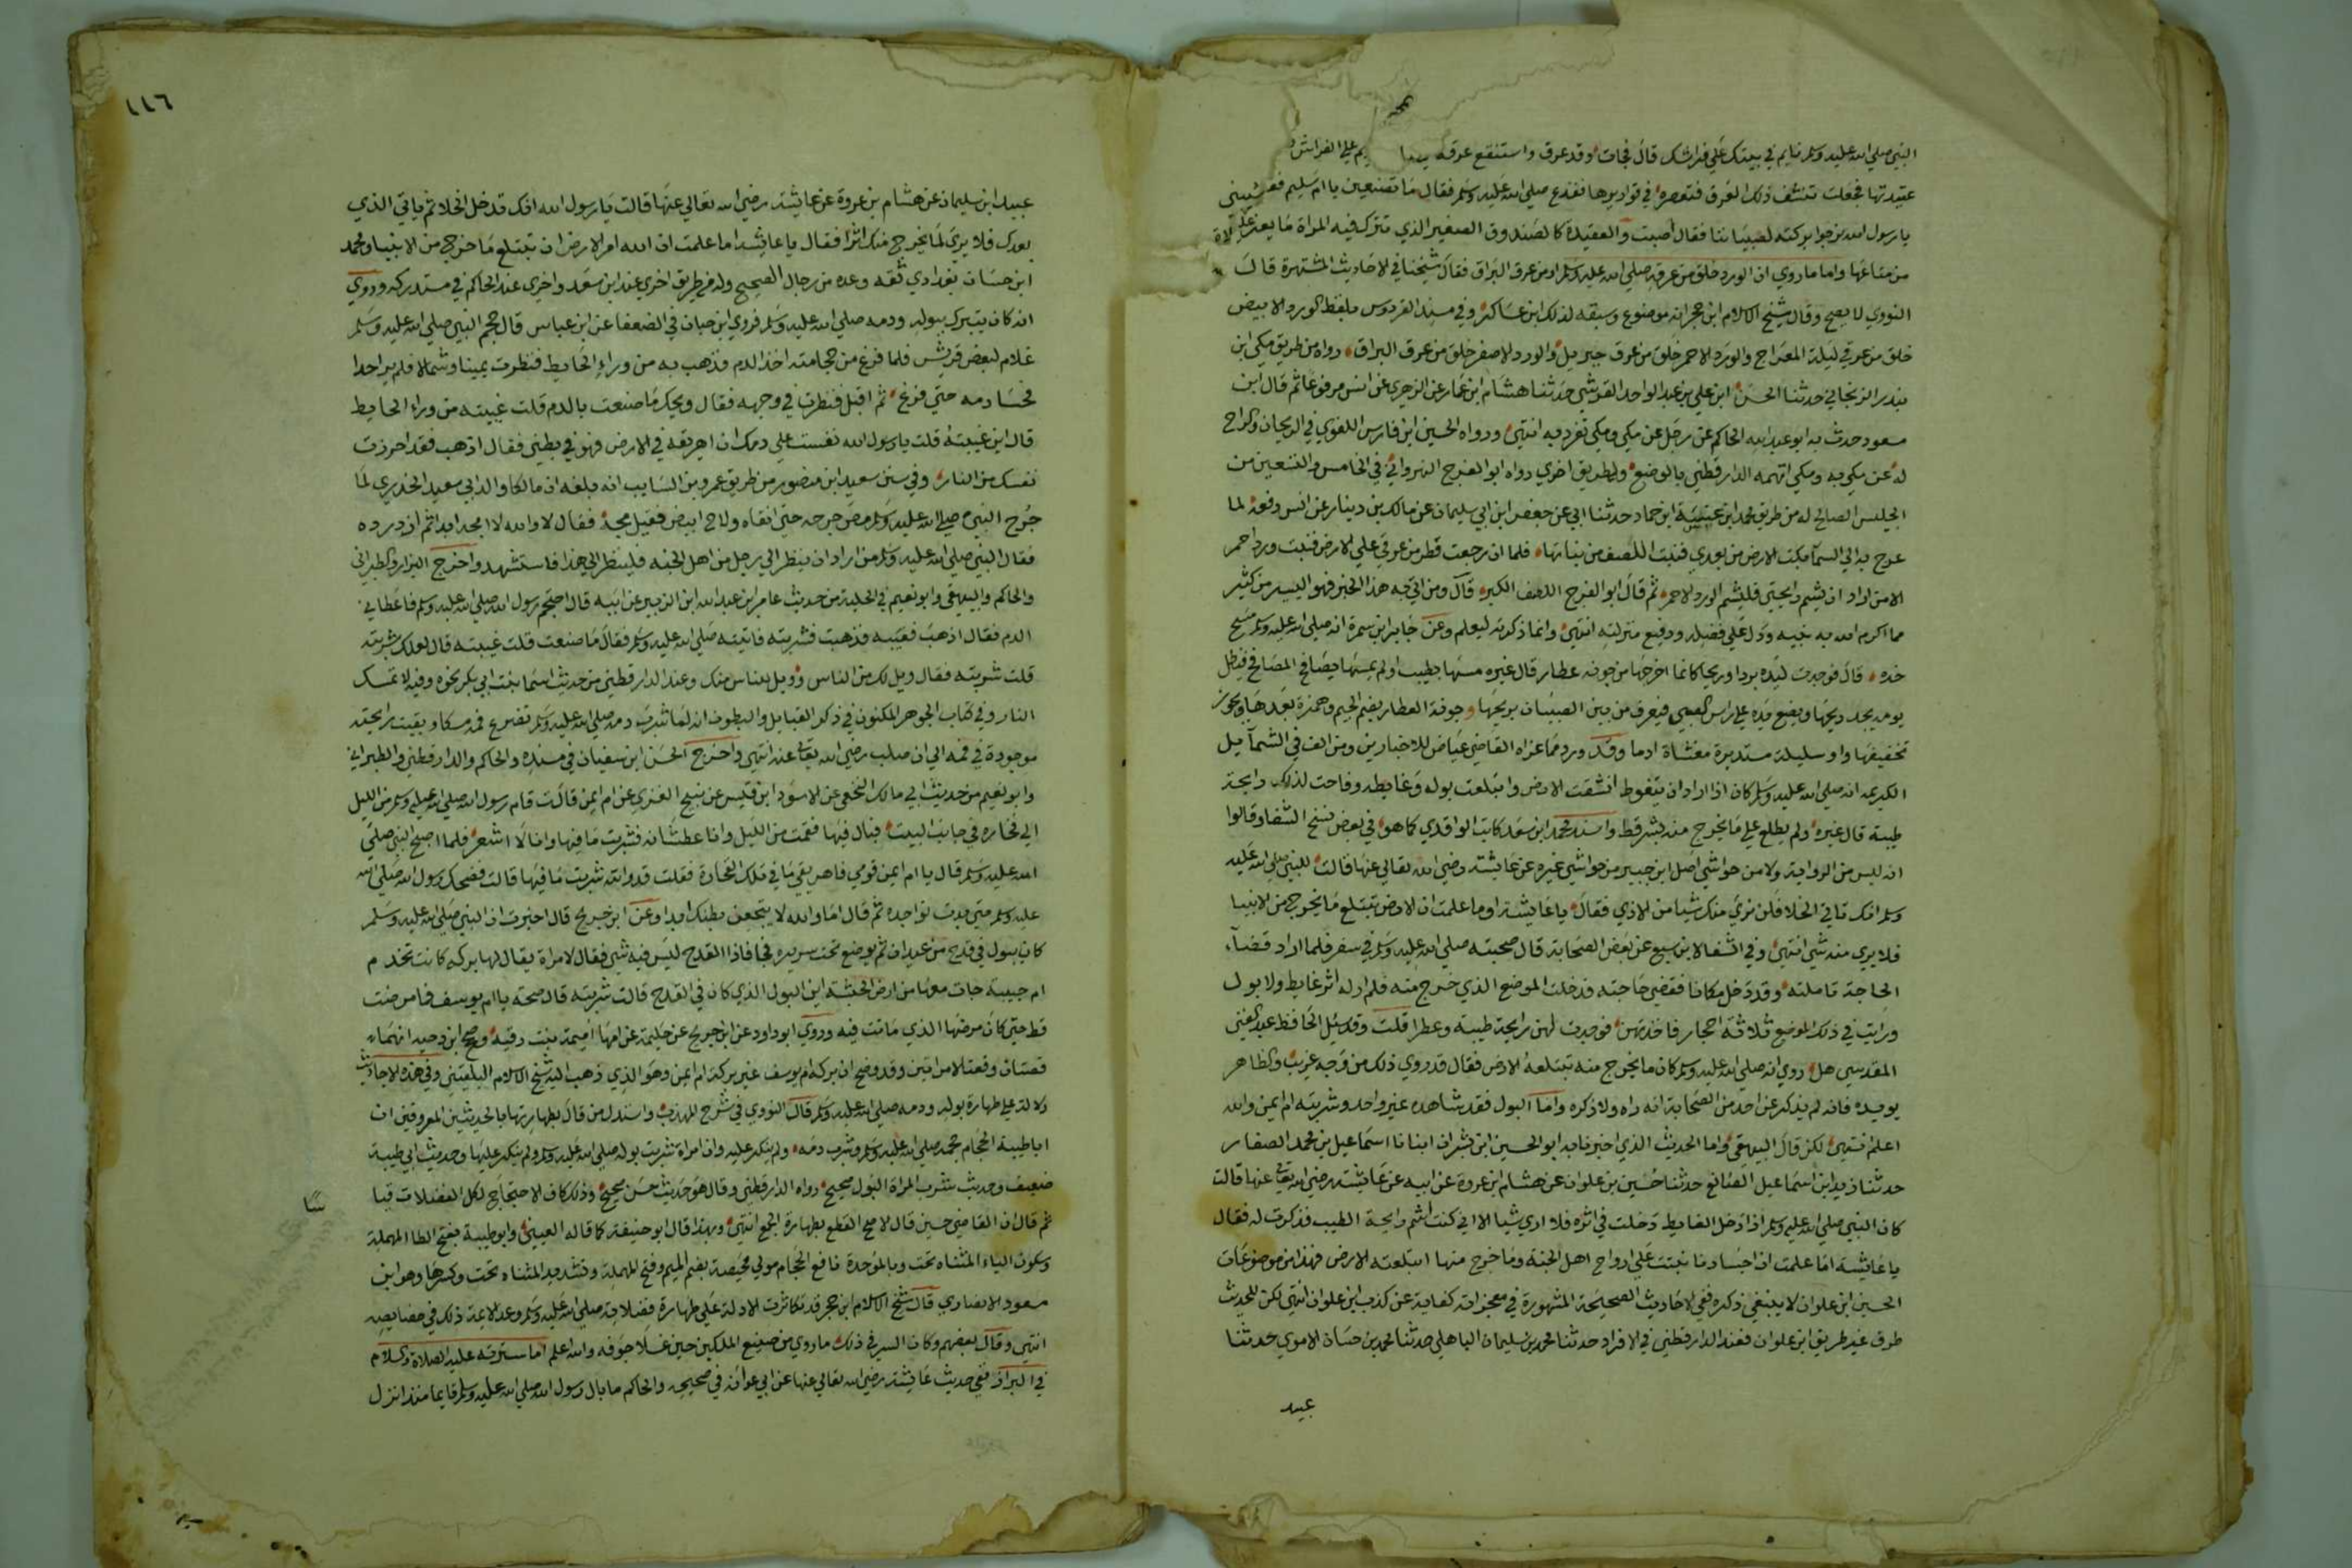 النبي صلي الله عليه وسلم نايم في بيتك علي فراشك قال فجات وقد عرق واستنقع عرقه علي الفراش
عتيدتها فجعلت تنشف ذلك العرق فتعصره في قواريرها ففزع صلي الله عليه وسلم فقال ما تصنعين يا ام سليم فقا
يا رسول الله نرجوا بركته لصبياننا فقال اصبت والعتيدة كالصندوق الصغير الذي تترك فيه المراة ما يعز عليها
من متاعها واما ما روي ان الورد خلق من عرقه صلي الله عليه وسلم او من عرق البراق فقال شيخنا في الاحاديث المشتهرة قال
النووي لا يصح وقال شيخ الاسلام ابن حجر انه موضوع وسبقه لذلك ابن عساكر وفي مسند الفردوس بلفظ الورد الابيض
خلق من عرقي ليلة المعراج والورد الاحمر خلق من عرق جبريل والورد الاصفر خلق من عرق البراق رواه من طريق مكي ابن
بندر الزنجاني حدثنا الحسن ابن علي بن عبد الواحد القرشي حدثنا هشام ابن عمار عن الزهري عن انس مرفوعا ثم قال ابن
مسعود حدث به ابو عبد الله الحاكم عن رجل عن مكي ومكي تفرد به انتهي ورواه الحسين ابن فارس اللغوي في الريحان والراح
له عن مكي به ومكي اتهمه الدارقطني بالوضع وله طريق اخري رواه ابو الفرج النهرواني في الخامس والتسعين من
الجليس الصالح له من طريق محمد ابن عيينة ابن حماد حدثنا ابي عن جعفر ابن ابي سليمان عن مالك بن دينار عن انس رفعه لما
عرج بي الي السما بكت الارض من بعدي فنبت اللصف من نباتها فلما ان رجعت قطر من عرقي علي الارض فنبت ورد احمر
الا من اراد ان يشم رايحتي فليشم الورد الاحمر ثم قال ابو الفرج اللصف الكبر قال وما اتي به هذا الخبر فهو اليسير من كثير
مما اكرم الله به نبيه ودل علي فضله ورفيع منزلته انتهي وانما ذكرته ليعلم وعن جابر ابن سمرة انه صلي الله عليه وسلم مسح
خده قال فوجدت ليده بردا وريحا كانما اخرجها من جونة عطار قال غيره مسها بطيب او لم يمسها يصافح المصافح فيظل
يومه يجد ريحها ويضع يده علي راس الصبي فيعرف من بين الصبيان بريحها وجونة العطار بضم الجيم وهمزة بعدها ويجوز
تخفيفها واو سليلة مستديرة مغشاة ادما وقد ورد مما عزاه القاضي عياض للاخباريين ومن الف في الشمايل
الكريمة انه صلي الله عليه وسلم كان اذا اراد ان يتغوط انشقت الارض وابتلعت بوله وغايطه وفاحت لذلك رايحة
طيبة قال غيره ولم يطلع علي ما يخرج منه بشر قط واسند محمد ابن سعد كاتب الواقدي كما هو في بعض نسخ الشفا وقالوا
انه ليس من الرواية ولا من حواشي اصل ابن جبير من حواشي غيره عن عايشة رضي الله تعالي عنها قالت للنبي صلي الله عليه
وسلم انك تاتي الخلا فلن نري منك شيا من الاذي فقال يا عايشة اوما علمت ان الارض تبتلع ما يخرج من الانبيا
فلا يري منه شي انتهي وفي الشفا لابن سبع عن بعض الصحابة قال صحبته صلي الله عليه وسلم في سفر فلما اراد قضآ
الحاجة تاملته وقد دخل مكانا فقضي حاجته فدخلت الموضع الذي خرج منه فلم ار له اثر غايط ولا بول
ورايت في ذلك الموضع ثلاثة احجار فاخذتهن فوجدت لهن رايحة طيبة وعطرا قلت وقد سئل الحافظ عبد الغني
المقدسي هل روي انه صلي الله عليه وسلم كان ما يخرج منه تبتلعه الارض فقال قد روي ذلك من وجه غريب والظاهر
يويده فانه لم يذكر عن احد من الصحابة انه راه ولا ذكره واما البول فقد شاهده غير واحد وشربته ام ايمن والله
اعلم انتهي لكن قال البيهقي واما الحديث الذي اخبرنا به ابو الحسين ابن بشران انبانا اسماعيل بن محمد الصفار
حدثنا زيد ابن اسماعيل الصائغ حدثنا حسين بن علوان عن هشام ابن عروة عن ابيه عن عايشة رضي الله تعالي عنها قالت
كان النبي صلي الله عليه وسلم اذا دخل الغايط دخلت في اثره فلا اري شيا الا اني كنت اشم رايحة الطيب فذكرت له فقال
يا عايشة اما علمت ان اجسادنا نبتت علي ارواح اهل الجنة وما خرج منها ابتلعته الارض فهذا من موضوعات
الحسين ابن علوان لا ينبغي ذكره ففي الاحاديث الصحيحة المشهورة في معجزاته كفاية عن كذب ابن علوان انتهي لكن للحديث
طرق غير طريق ابن علوان فعند الدارقطني في الافراد حدثنا محمد بن سليمان الباهلي حدثنا محمد بن حسان الاموي حدثنا
عبيد
١١٦
عبيد ابن سليمان عن هشام بن عروة عن عايشة رضي الله تعالي عنها قالت يا رسول الله انك تدخل الخلا ثم ياتي الذي
بعدك فلا يري لما يخرج منك اثرا فقال يا عايشة اما علمت ان الله امر الارض ان تبتلع ما خرج من الانبيا ومحمد
ابن حسان بغدادي ثقة وعده من رجال الصحيح وله طريق اخري عند ابن سعد واخري عند الحاكم في مستدركه وروي
انه كان يتبرك ببوله ودمه صلي الله عليه وسلم فروي ابن حبان في الضعفا عن ابن عباس قال حجم النبي صلي الله عليه وسلم
غلام لبعض قريش فلما فرغ من حجامته اخذ الدم فذهب به من وراء الحايط فنظرت يمينا وشمالا فلم ير احدا
فحسا دمه حتي فرغ ثم اقبل فنظر في وجهه فقال ويحك ما صنعت بالدم قلت غيبته من وراء الحايط
قال اين غيبته قلت يا رسول الله نفست علي دمك ان اهريقه في الارض فهو في بطني فقال اذهب فقد احرزت
نفسك من النار وفي سنن سعيد ابن منصور من طريق عمرو بن السايب انه بلغه ان مالكا والد ابي سعيد الخدري لما
جرح النبي صلي الله عليه وسلم مص جرحه حتي انقاه ولاح ابيض فقيل مجه فقال لا والله لا امجه ابدا ثم ازدرده
فقال النبي صلي الله عليه وسلم من اراد ان ينظر الي رجل من اهل الجنة فلينظر الي هذا فاستشهد واخرج البزار والطبراني
والحاكم والبيهقي وابو نعيم في الحلية من حديث عامر ابن عبد الله ابن الزبير عن ابيه قال احتجم رسول الله صلي الله عليه وسلم فاعطاني
الدم فقال اذهب فغيبه فذهبت فشربته فاتيته صلي الله عليه وسلم فقال ما صنعت قلت غيبته قال لعلك شربته
قلت شربته فقال ويل لك من الناس وويل للناس منك وعند الدارقطني من حديث اسما بنت ابي بكر نحوه وفيه لا تمسك
النار وفي كتاب الجوهر المكنون في ذكر القبايل والبطون انه لما شرب دمه صلي الله عليه وسلم تضوع فمه مسكا وبقيت رايحته
موجودة في فمه الي ان صلب رضي الله تعالي عنه انتهي واخرج الحسن ابن سفيان في مسنده والحاكم والدارقطني والطبراني
وابو نعيم من حديث ابي مالك النخعي عن الاسود ابن قيس عن نبيح العنزي عن ام ايمن قالت قام رسول الله صلي الله عليه وسلم من الليل
الي فخارة في جانب البيت فبال فيها فقمت من الليل وانا عطشانه فشربت ما فيها وانا لا اشعر فلما اصبح النبي صلي
الله عليه وسلم قال يا ام ايمن قومي فاهريقي ما في تلك الفخارة فقلت قد والله شربت ما فيها قالت فضحك رسول الله صلي الله
عليه وسلم حتي بدت نواجذه ثم قال اما والله لا يتجعن بطنك ابدا وعن ابن جريج قال اخبرت ان النبي صلي الله عليه وسلم
كان يبول في قدح من عيدان ثم يوضع تحت سريره فجا فاذا القدح ليس فيه شي فقال لامراة يقال لها بركه كانت تخدم
ام حبيبة جات معها من ارض الحبشة اين البول الذي كان في القدح قالت شربته قال صحة يا ام يوسف فما مرضت
قط حتي كان مرضها الذي ماتت فيه وروي ابو داود عن ابن جريج عن حكيمة عن امها اميمة بنت رقيه وصحح ابن دحيه انهما
قصتان وقعتا لامراتين وقد وضح ان بركه ام يوسف غير بركه ام ايمن وهو الذي ذهب اليه شيخ الاسلام البلقيني وفي هذه الاحاديث
دلالة علي طهارة بوله ودمه صلي الله عليه وسلم قال النووي في شرح المهذب واستدل من قال بطهارتها بالحديثين المعروفين ان
ابا طيبة الحجام حجمه صلي الله عليه وسلم وشرب دمه ولم ينكر عليه وان امراة شربت بوله صلي الله عليه وسلم ولم ينكر عليها وحديث ابي طيبة
ضعيف وحديث شرب المراة البول صحيح رواه الدارقطني وقال هو حديث حسن صحيح وذلك كاف في الاحتجاج لكل الفضلات قيا
سا
ثم قال ان القاضي حسين قال الاصح القطع بطهارة الجميع انتهي وبهذا قال ابو حنيفة كما قاله العيني وابو طيبة بفتح الطا المهملة
وسكون الياء المثناه تحت وبالموحدة نافع الحجام مولي محيصة بضم الميم وفتح المهملة وتشديد المثناه تحت وكسرها وهو ابن
مسعود الانصاري قال شيخ الاسلام ابن حجر قد تكاثرت الادلة علي طهارة فضلاته صلي الله عليه وسلم وعد الايمة ذلك في خصايصه
انتهي وقال بعضهم وكان السر في ذلك ما روي من صنيع الملكين حين غسلا جوفه والله اعلم اما سيرته عليه الصلاة والسلام
في البراز ففي حديث عايشة رضي الله تعالي عنها عن ابي عوانه في صحيحه والحاكم ما بال رسول الله صلي الله عليه وسلم قايما منذ انزل